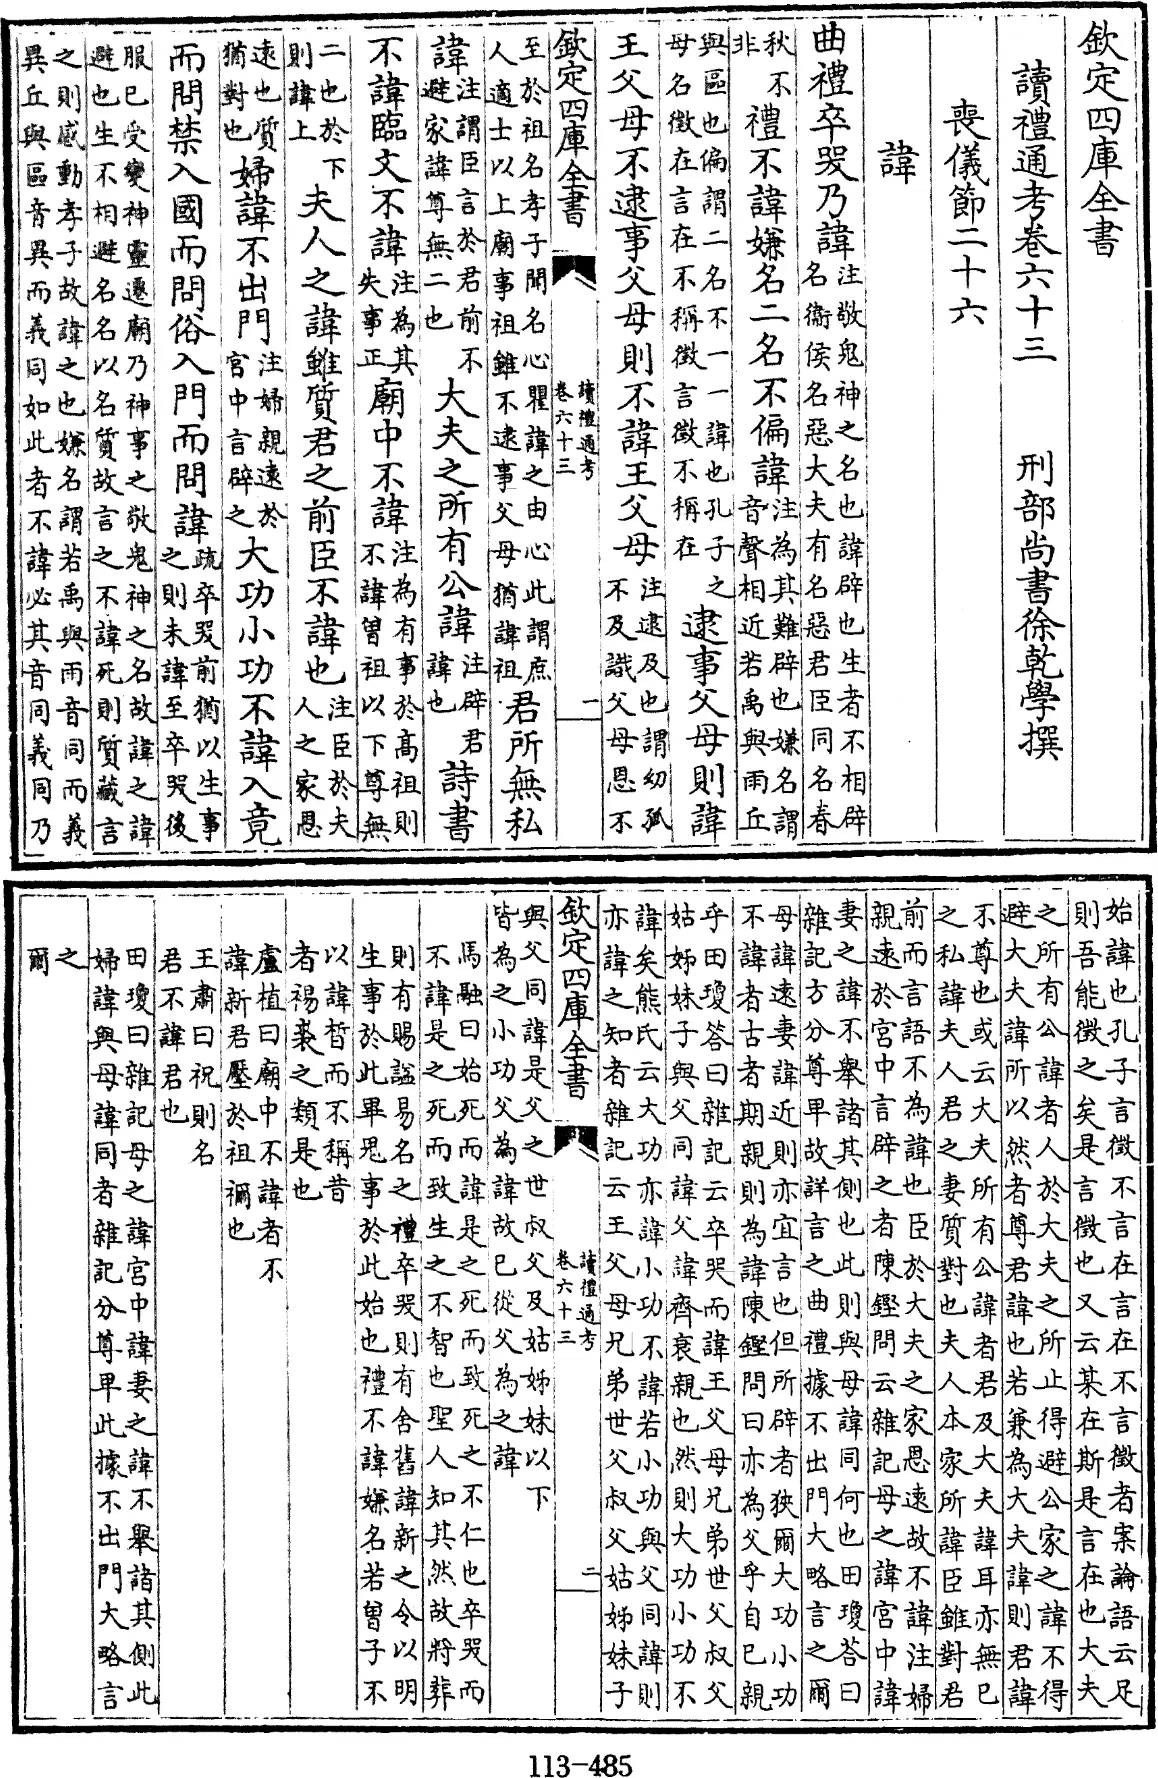 欽定四庫全書
讀禮通考卷六十三 刑部尚書徐乾學撰
喪儀節二十六
諱
曲禮卒哭乃諱注敬鬼神之名也諱辟也生者不相辟名衞侯名惡大夫有名惡君臣同名春
秋不非禮不諱嫌名二名不偏諱注為其難辟也嫌名謂音聲相近若禹與雨丘
與區也偏謂二名不一一諱也孔子之母名徵在言在不稱徵言徵不稱在逮事父母則諱
王父母不逮事父母則不諱王父母注逮及也謂幼孤不及識父母恩不
欽定四庫全書 讀禮通考卷六十三 一
至於祖名孝子聞名心瞿諱之由心此謂庶人適士以上廟事祖雖不逮事父母猶諱祖君所無私
諱注謂臣言於君前不避家諱尊無二也大夫之所有公諱注辟君諱也詩書
不諱臨文不諱注為其失事正廟中不諱注為有事於高祖則不諱曾祖以下尊無
二也於下則諱上夫人之諱雖質君之前臣不諱也注臣於夫人之家恩
遠也質猶對也婦諱不出門注婦親遠於宮中言辟之大功小功不諱入竟
而問禁入國而問俗入門而問諱疏卒哭前猶以生事之則未諱至卒哭後
服已受變神靈遷廟乃神事之敬鬼神之名故諱之諱
避也生不相避名以名質故言之不諱死則質藏言
之則感動孝子故諱之也嫌名謂若禹與雨音同而義
異丘與區音異而義同如此者不諱必其音同義同乃
始諱也孔子言徵不言在言在不言徵者案論語云足
則吾能徵之矣是言徵也又云某在斯是言在也大夫
之所有公諱者人於大夫之所止得避公家之諱不得
避大夫諱所以然者尊君諱也若兼為大夫諱則君諱
不尊也或云大夫所有公諱者君及大夫諱耳亦無已
之私諱夫人君之妻質對也夫人本家所諱臣雖對君
前而言語不為諱也臣於大夫之家恩遠故不諱注婦
親遠於宮中言辟之者陳鏗問云雜記母之諱宮中諱
妻之諱不舉諸其側也此則與母諱同何也田瓊答曰
雜記方分尊卑故詳言之曲禮據不出門大略言之爾
母諱遠妻諱近則亦宜言也但所辟者狹爾大功小功
不諱者古者期親則為諱陳鏗問曰亦為父乎自已親
乎田瓊答曰雜記云卒哭而諱王父母兄弟世父叔父
姑姊妹子與父同諱父諱齊衰親也然則大功小功不
諱矣熊氏云大功亦諱小功不諱若小功與父同諱則
亦諱之知者雜記云王父母兄弟世父叔父姑姊妹子
欽定四庫全書 讀禮通考卷六十三 二
與父同諱是父之世叔父及姑姊妹以下
皆為之小功父為諱故已從父為之諱
馬融曰始死而諱是之死而致死之不仁也卒哭而
不諱是之死而致生之不智也聖人知其然故將葬
則有賜諡易名之禮卒哭則有舍舊諱新之令以明
生事於此畢鬼事於此始也禮不諱嫌名若曾子不
以諱晳而不稱昔
者裼裘之類是也
盧植曰廟中不諱者不
諱新君壓於祖禰也
王肅曰祝則名
君不諱君也
田瓊曰雜記母之諱宮中諱妻之諱不舉諸其側此
婦諱與母諱同者雜記分尊卑此據不出門大略言
之
爾
113-485